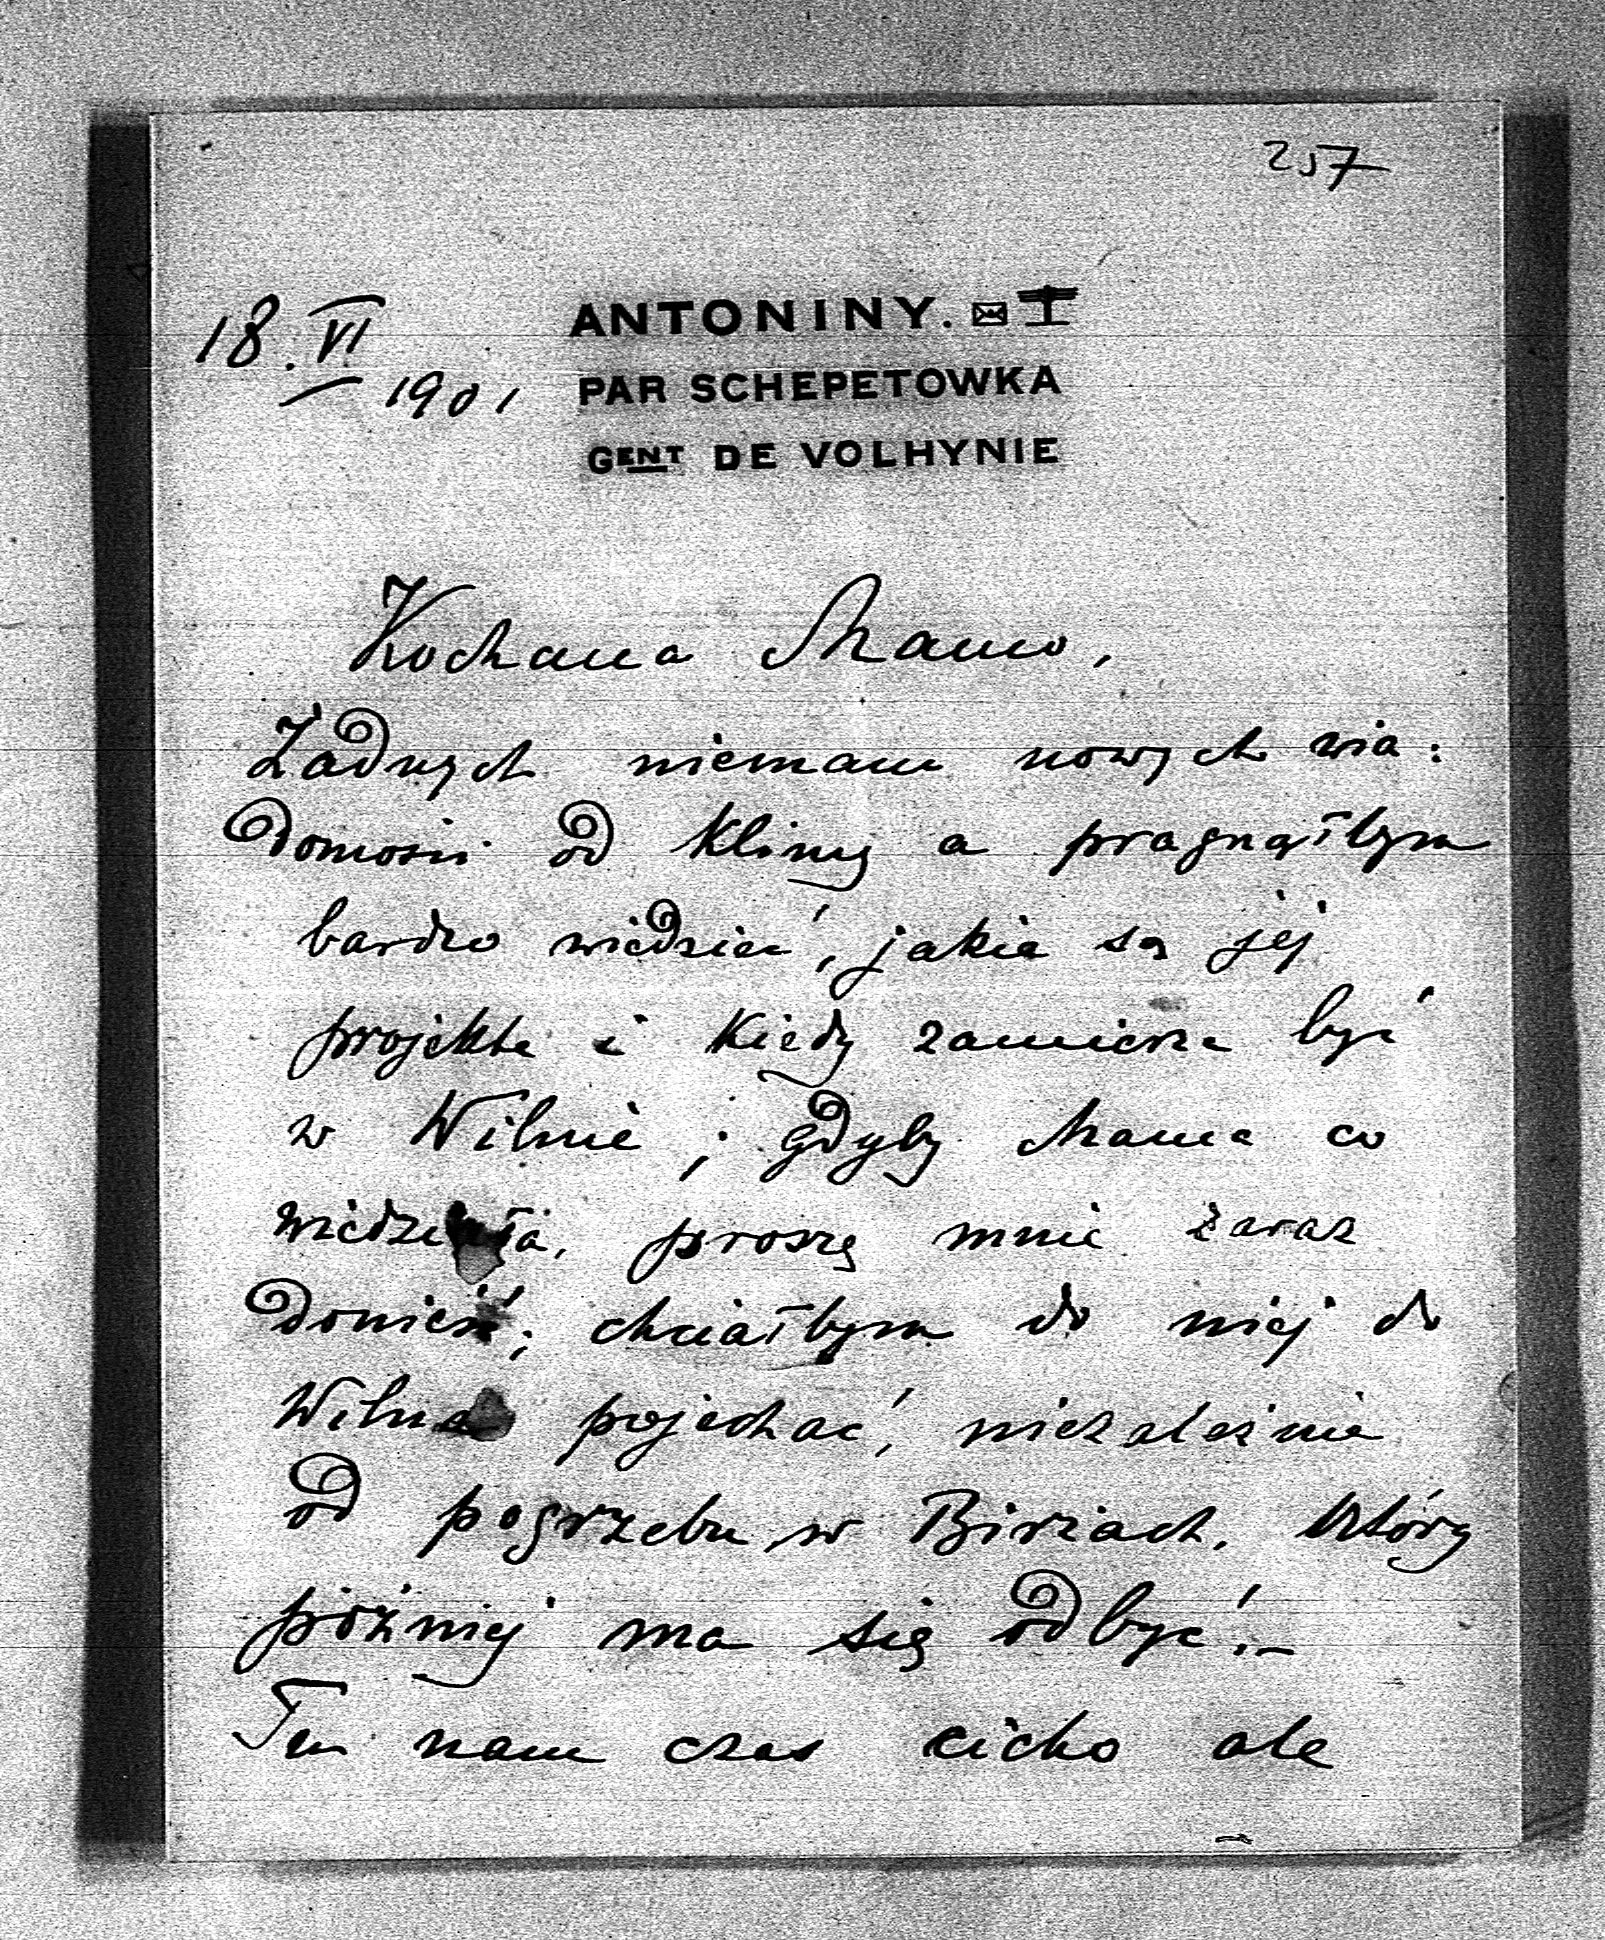 257
18.VI 1901
ANTONINY.
PAR SCHEPETOWKA
GENT DE VOLHYNIE
Kochana Mamo,
Żadnych niemam nowych wia:
domości od Klimy a pragnąłbym
bardzo wiedzieć, jakie są jej
projekta i kiedy zamierza być
w Wilnie; gdyby Mama co
wiedziała, proszę mnie zaraz
donieść; chciałbym do niej do
Wilna pojechać, niezależnie
od pogrzebu w Birżach, który
później ma się odbyć.–
Ten nam czas cicho ale